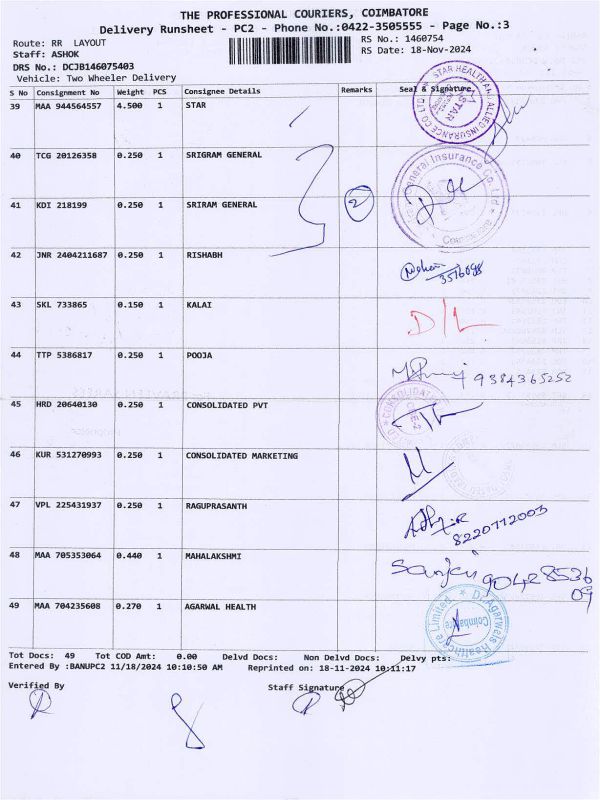 THE PROFESSIONAL COURIERS, COIMBATORE
Delivery Runsheet - PC2 - Phone No.:0422-3505555 - Page No.:3
Route: RR LAYOUT RS No.: 1460754
Staff: ASHOK RS Date: 18-Nov-2024
DRS No.: DCJB146075403
Vehicle: Two Wheeler Delivery
S No Consignment No Weight PCS Consignee Details Remarks Seal & Signature
39 MAA 944564557 4.500 1 STAR
STAR HEALTH AND ALLIED INSURANCE CO LTD
STAR
40 TCG 20126358 0.250 1 SRIGRAM GENERAL
General Insurance Co. Ltd
Coimbatore
41 KDI 218199 0.250 1 SRIRAM GENERAL 2
42 JNR 2404211687 0.250 1 RISHABH
3516098
43 SKL 733865 0.150 1 KALAI D/L
44 TTP 5386817 0.250 1 POOJA 9384365252
45 HRD 20640130 0.250 1 CONSOLIDATED PVT
CONSOLIDATED
46 KUR 531270993 0.250 1 CONSOLIDATED MARKETING
47 VPL 225431937 0.250 1 RAGUPRASANTH
8220772003
48 MAA 705353064 0.440 1 MAHALAKSHMI
Sanjay 90428536
09
49 MAA 704235608 0.270 1 AGARWAL HEALTH
Dr.Agarwals Healthcare Limited
Coimbatore
Tot Docs: 49 Tot COD Amt: 0.00 Delvd Docs: Non Delvd Docs: Delvy pts:
Entered By :BANUPC2 11/18/2024 10:10:50 AM Reprinted on: 18-11-2024 10:11:17
Verified By Staff Signature